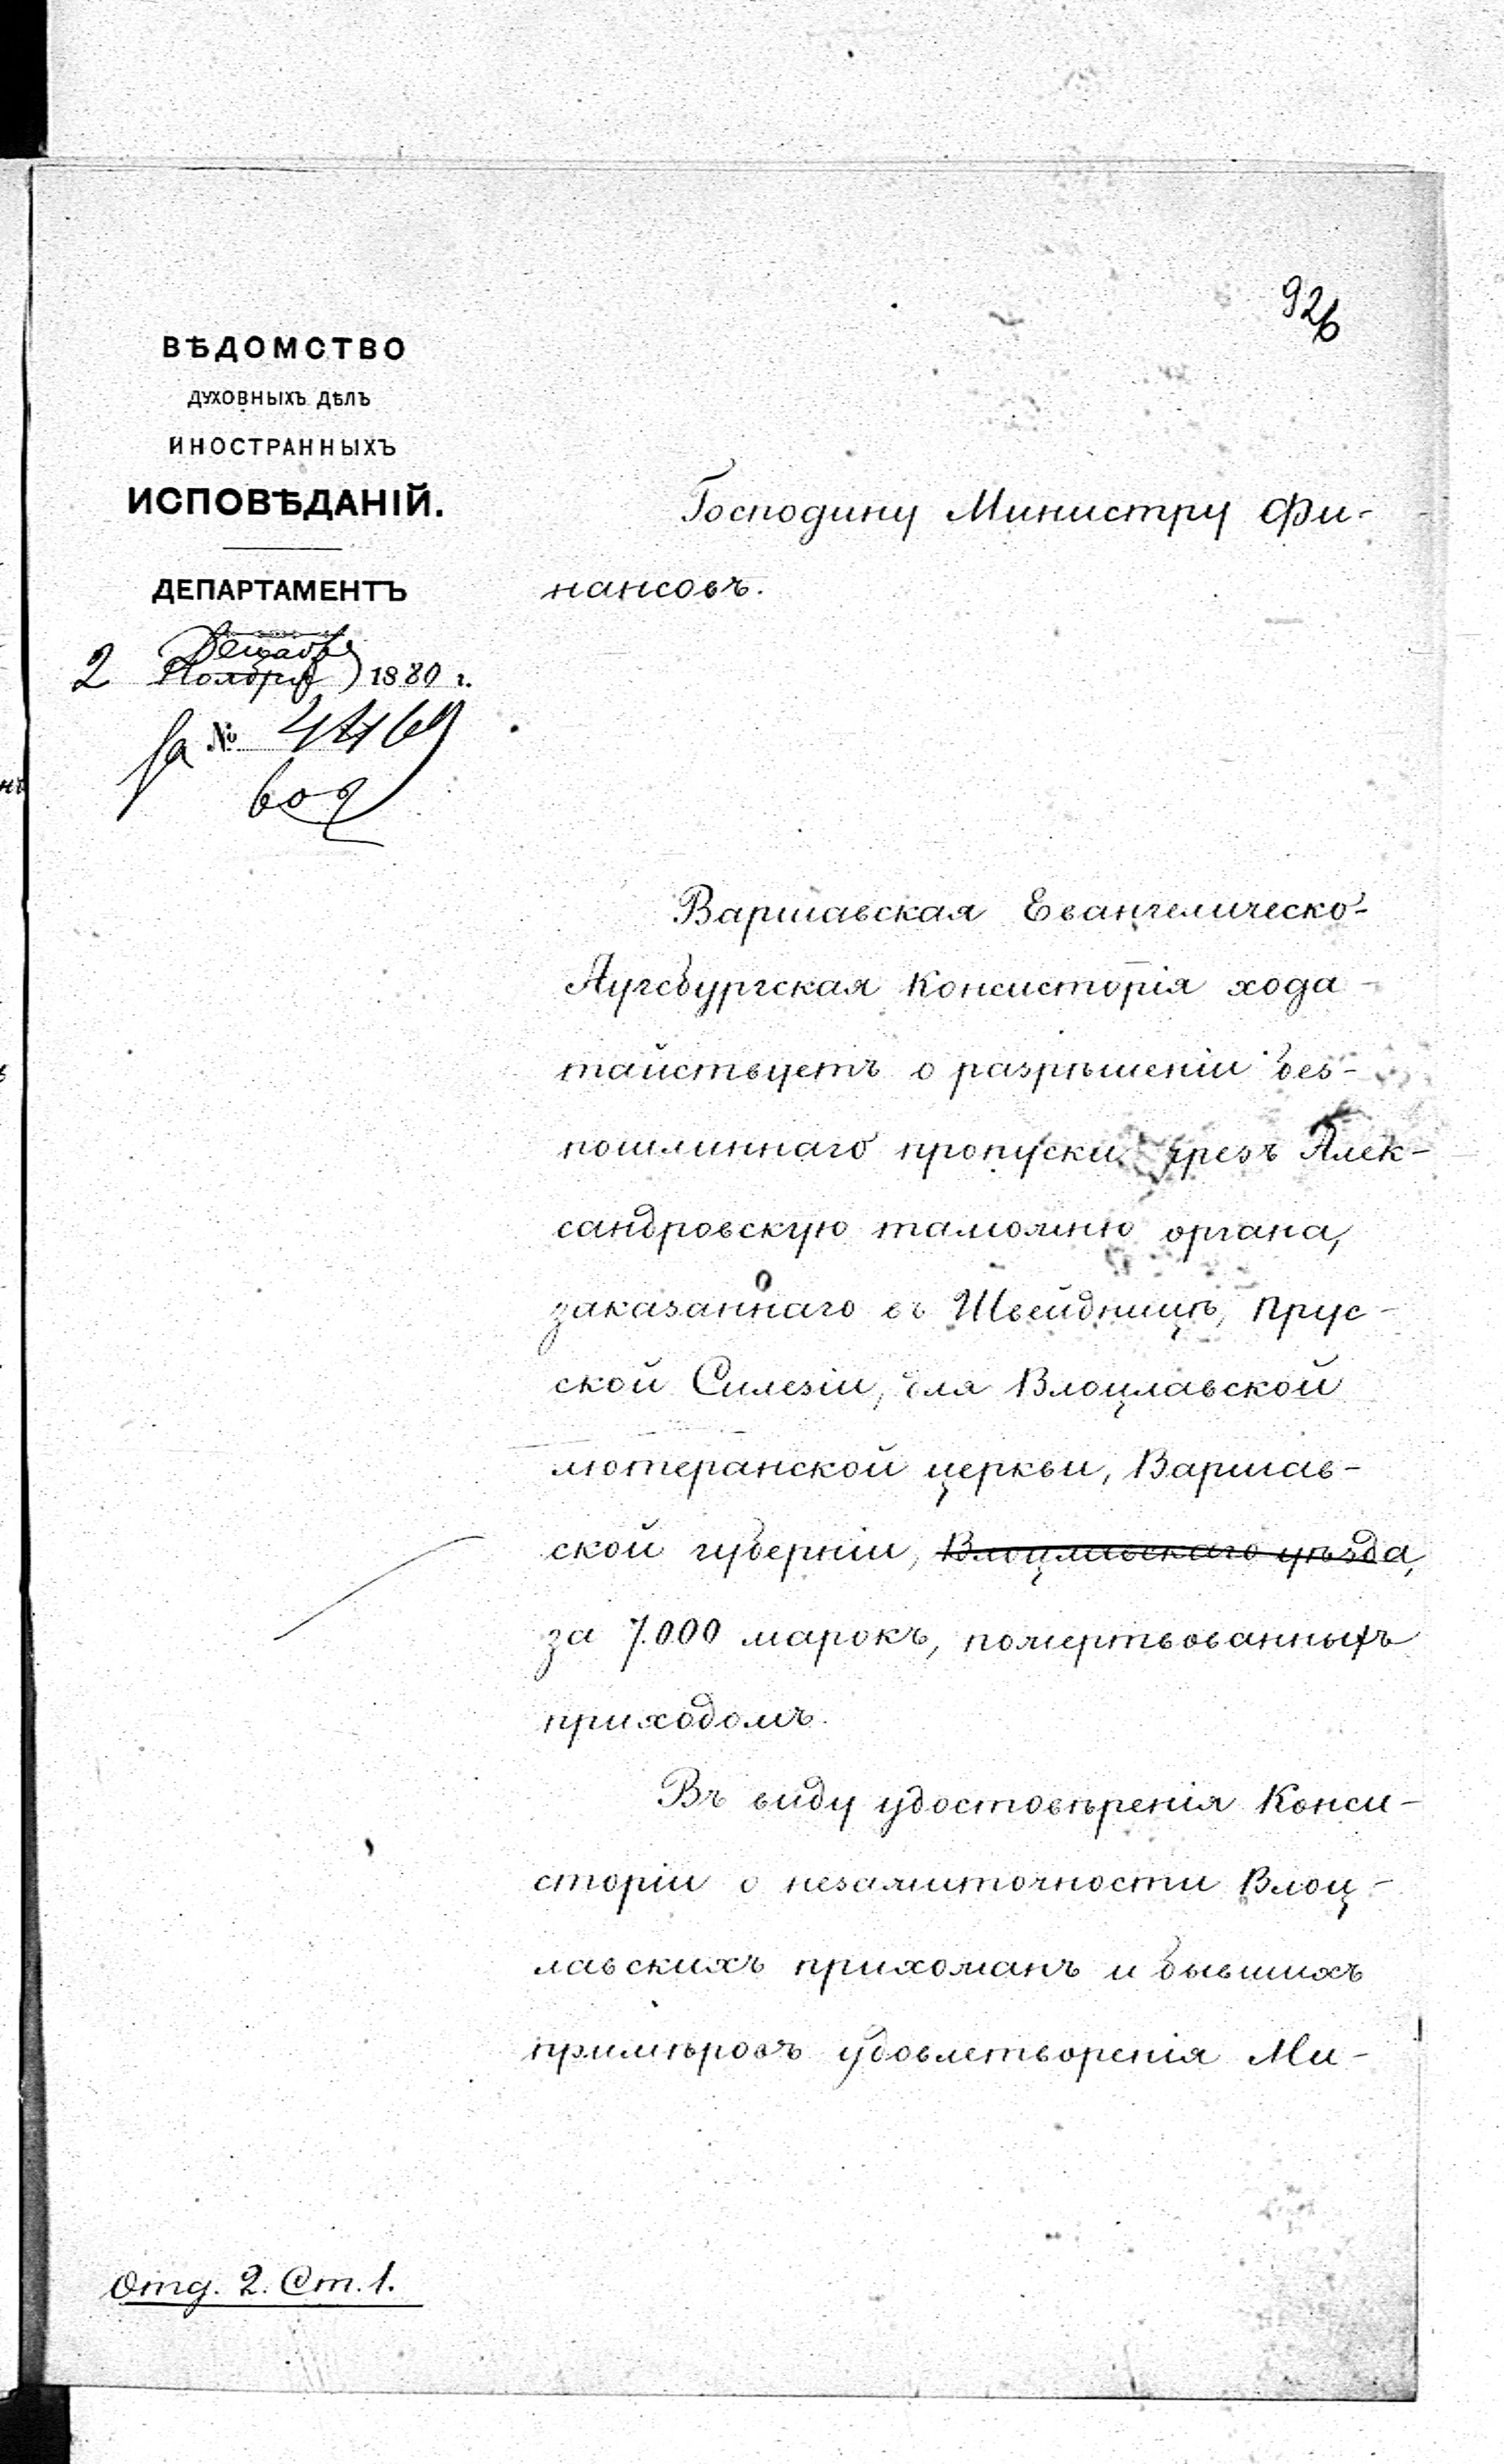 926
ВѢДОМСТВО
ДУХОВНЫХЪ ДѢЛЪ
ИНОСТРАННЫХЪ
ИСПОВѢДАНІЙ.
ДЕПАРТАМЕНТЪ
Декабря
2 Ноября 1880 г.
№
Господину Министру Фи-
нансовъ.
Варшавская Евангелическо-
Аугсбургская Консисторія хода-
тайствуетъ о разрѣшеніи без-
пошлиннаго пропуска чрезъ Алек-
сандровскую таможню органа,
заказаннаго въ Швейдницѣ, Прус-
ской Силезіи, для Влоцлавской
лютеранской церкви, Варшав-
ской губерніи, Влоцлавскаго уѣзда,
за 7.000 марокъ, пожертвованныхъ
приходомъ.
Въ виду удостовѣренія Конси-
сторіи о незажиточности Влоц-
лавскихъ прихожанъ и бывшихъ
примѣровъ удовлетворенія Ми-
Отд. 2. Ст. 1.